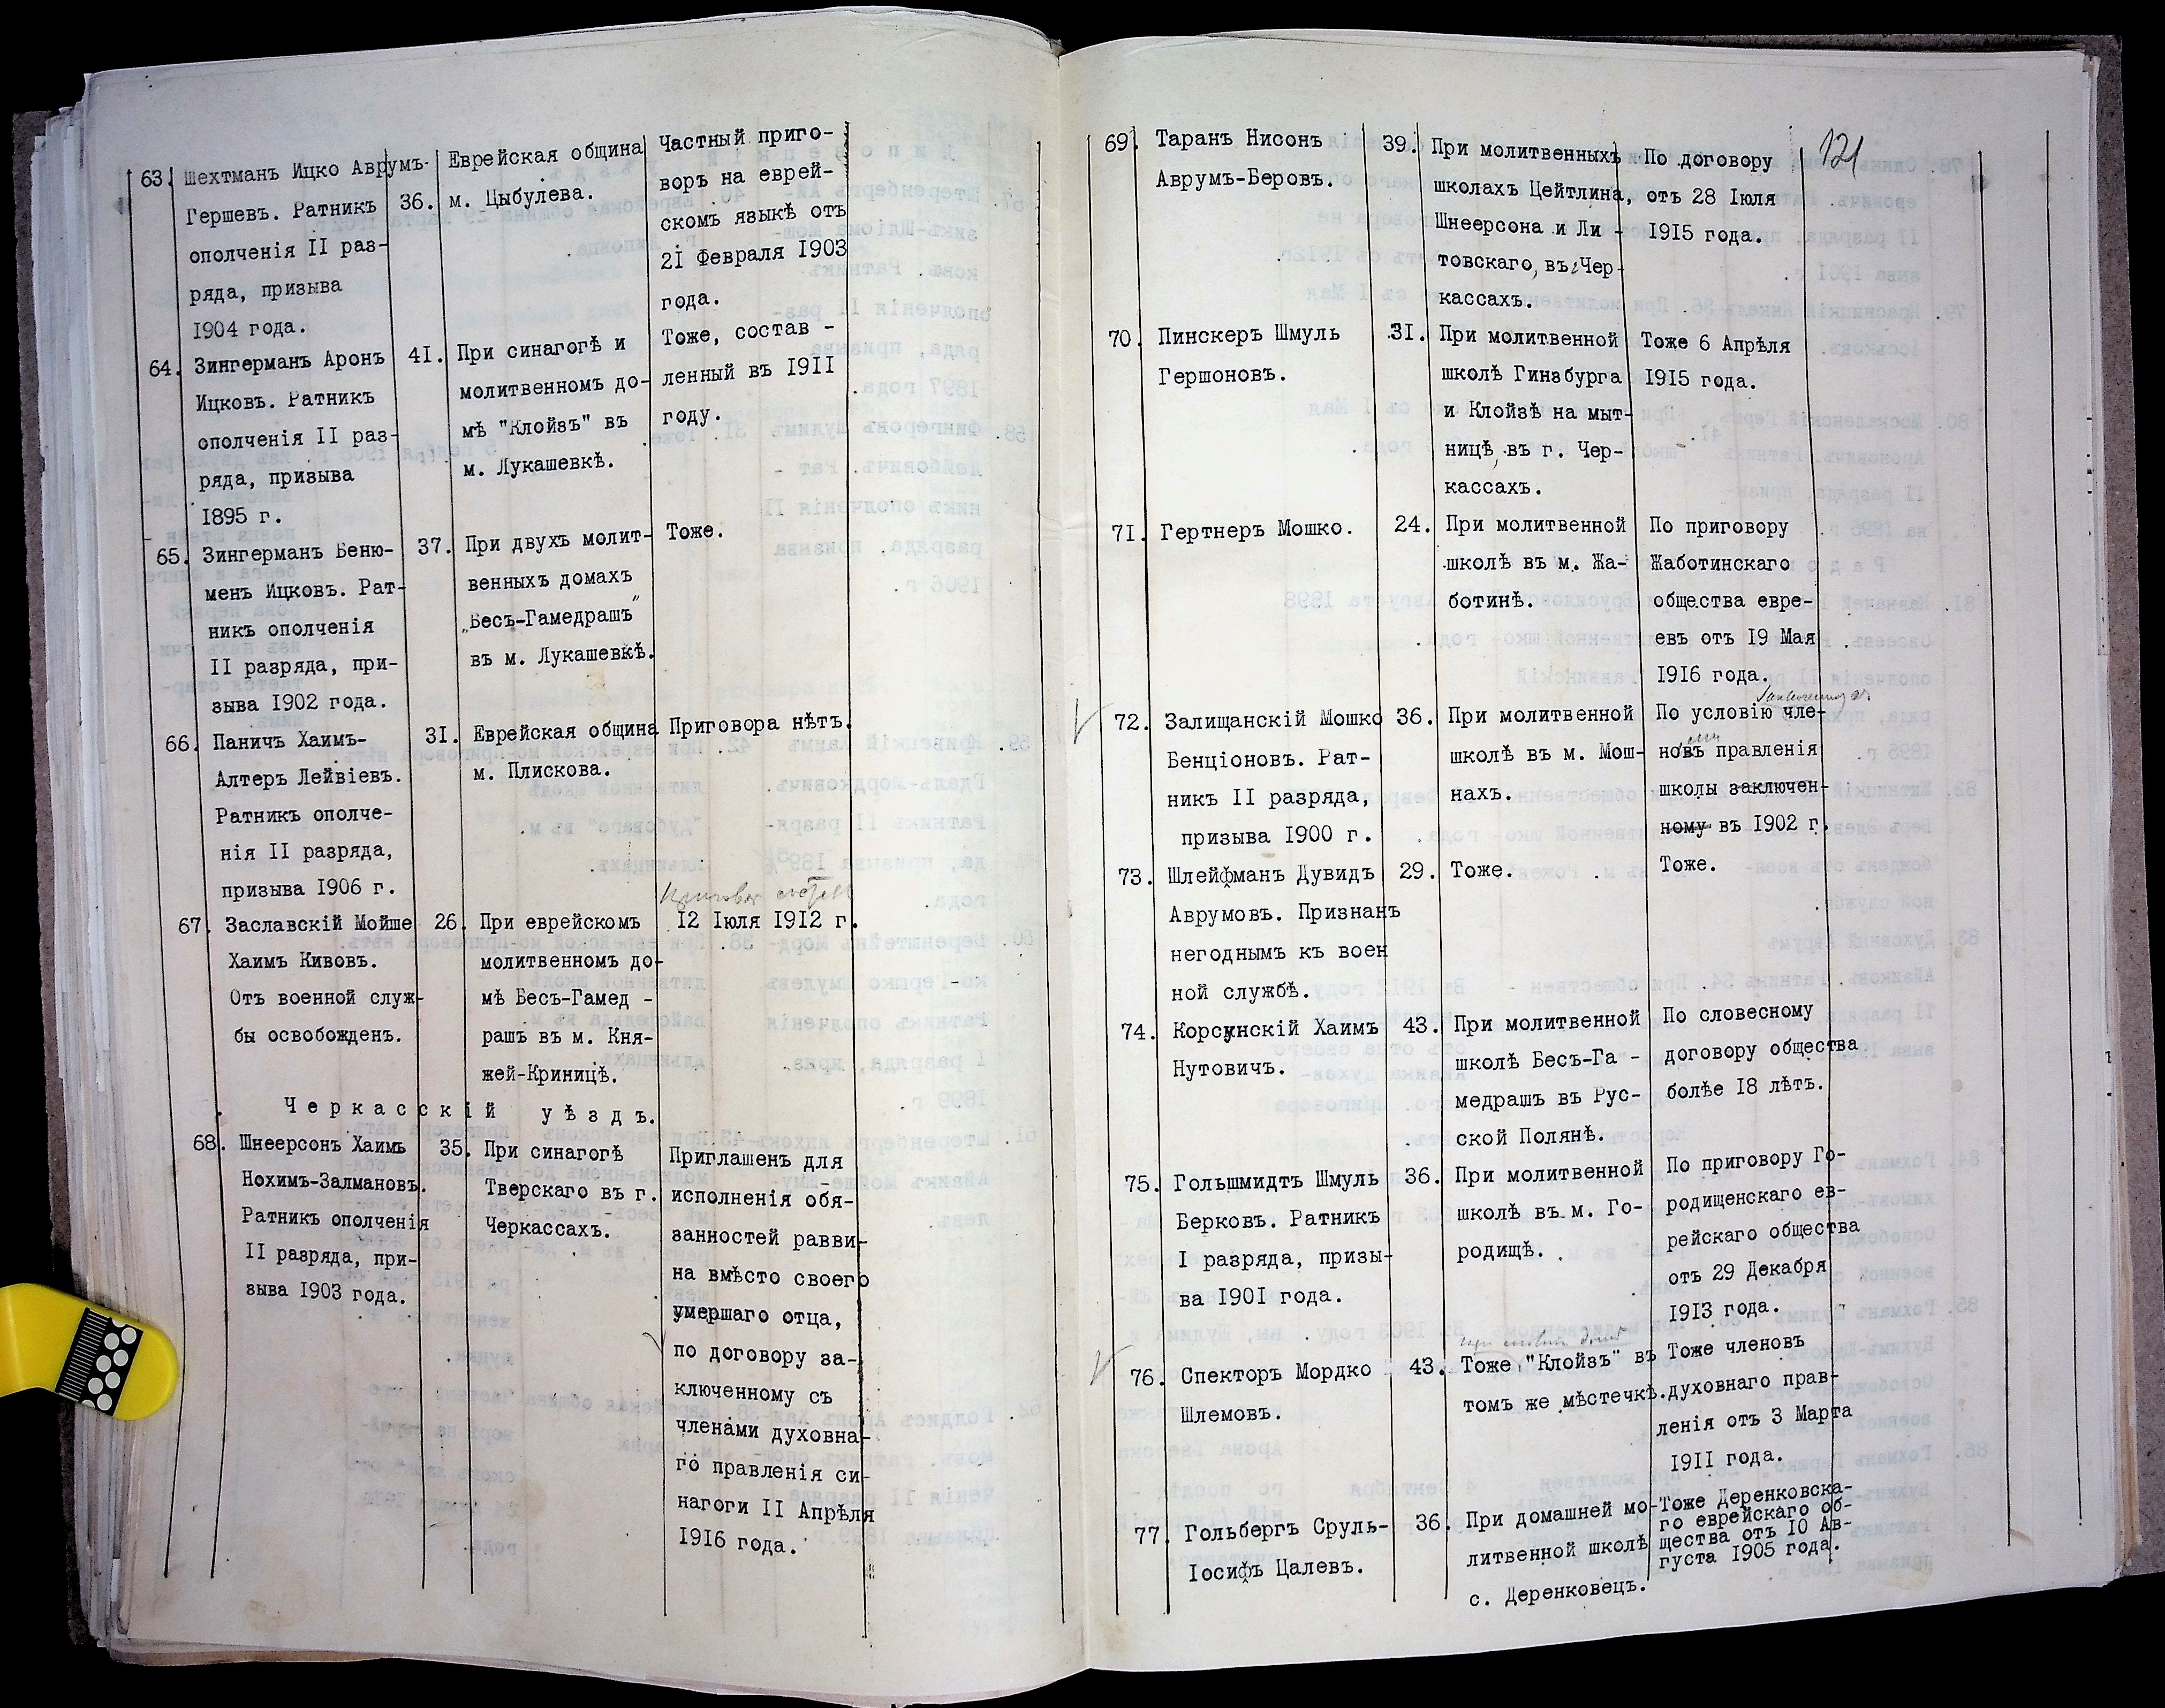 63. Шехтманъ Ицко Аврумъ-
Гершевъ. Ратникъ
ополченія II раз-
ряда, призыва
1904 года.
36.
Еврейская община
м. Цыбулева.
Частный приго-
воръ на еврей-
скомъ языкѣ отъ
21 Февраля 1903
года.
64. Зингерманъ Аронъ
Ицковъ. Ратникъ
ополченія II раз-
ряда, призыва
1895 г.
41.
При синагогѣ и
молитвенномъ до-
мѣ "Клойзъ" въ
м. Лукашевкѣ.
Тоже, состав -
ленный въ 1911
году.
65. Зингерманъ Беню-
менъ Ицковъ. Рат-
никъ ополченія
II разряда, при-
зыва 1902 года.
37.
При двухъ молит-
венныхъ домахъ
„Бесъ-Гамедрашъ"
въ м. Лукашевкѣ.
Тоже.
66. Паничъ Хаимъ-
Алтеръ Лейвіевъ.
Ратникъ ополче-
нія II разряда,
призыва 1906 г.
31.
Еврейская община
м. Плискова.
Приговора нѣтъ.
67. Заславскій Мойше
Хаимъ Кивовъ.
Отъ военной служ-
бы освобожденъ.
26.
При еврейскомъ
молитвенномъ до-
мѣ Бесъ-Гамед -
рашъ въ м. Кня-
жей-Криницѣ.
12 Іюля 1912 г.
Черкасскій уѣздъ.
68. Шнеерсонъ Хаимъ
Нохимъ-Залмановъ.
Ратникъ ополченія
II разряда, при-
зыва 1903 года.
35.
При синагогѣ
Тверскаго въ г.
Черкассахъ.
Приглашенъ для
исполненія обя-
занностей равви-
на вмѣсто своего
умершаго отца,
по договору за-
ключенному съ
членами духовна-
го правленія си-
нагоги II Апрѣля
1916 года.
121
69. Таранъ Нисонъ
Аврумъ-Беровъ.
39.
При молитвенныхъ
школахъ Цейтлина,
Шнеерсона и Ли -
товскаго, въ Чер-
кассахъ.
По договору
отъ 28 Іюля
1915 года.
70. Пинскеръ Шмуль
Гершоновъ.
31.
При молитвенной
школѣ Гинзбурга
и Клойзѣ на мыт-
ницѣ, въ г. Чер-
кассахъ.
Тоже 6 Апрѣля
1915 года.
71. Гертнеръ Мошко.
24.
При молитвенной
школѣ въ м. Жа-
ботинѣ.
По приговору
Жаботинскаго
общества евре-
евъ отъ 19 Мая
1916 года.
72. Залищанскій Мошко
Бенціоновъ. Рат-
никъ II разряда,
призыва 1900 г.
36.
При молитвенной
школѣ въ м. Мош-
нахъ.
По условію чле-
новъ правленія
школы заключен-
ному въ 1902 г.
73. Шлейфманъ Дувидъ
Аврумовъ. Признанъ
негоднымъ къ воен
ной службѣ.
29.
Тоже.
Тоже.
74. Корсунскій Хаимъ
Нутовичъ.
43.
При молитвенной
школѣ Бесъ-Га -
медрашъ въ Рус-
ской Полянѣ.
По словесному
договору общества
болѣе 18 лѣтъ.
75. Гольшмидтъ Шмуль
Берковъ. Ратникъ
I разряда, призы-
ва 1901 года.
36.
При молитвенной
школѣ въ м. Го-
родищѣ.
По приговору Го-
родищенскаго ев-
рейскаго общества
отъ 29 Декабря
1913 года.
76. Спекторъ Мордко
Шлемовъ.
43.
Тоже "Клойзъ" въ
томъ же мѣстечкѣ.
Тоже членовъ
духовнаго прав-
ленія отъ 3 Марта
1911 года.
77. Гольбергъ Сруль-
Іосифъ Цалевъ.
36.
При домашней мо-
литвенной школѣ
с. Деренковецъ.
Тоже Деренковска-
го еврейскаго об-
щества отъ 10 Ав-
густа 1905 года.